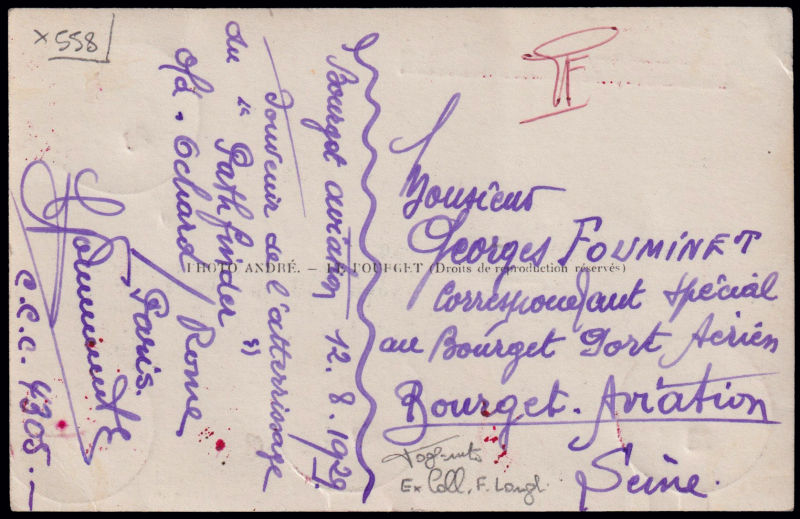 x558
TF
Bourget aviation 12.8.1929
Souvenir de l'atterrissage
du "Pathfinder"
Old. Echard / Rome
Paris.
C.C.C. 4305.-
Monsieur
Georges FOUMINET
PHOTO ANDRÉ. - LE BOURGET (Droits de reproduction réservés)
Correspondant spécial
au Bourget Port Aérien
Bourget. Aviation
Seine.
Ex Coll. F. Longh.